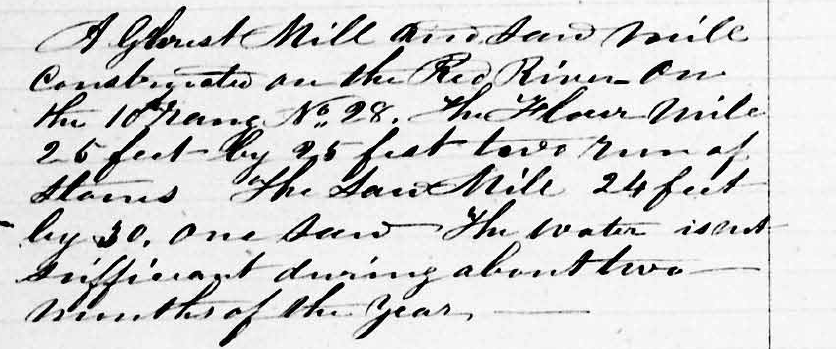 A Ghrist Mill and Saw Mill
Constructed on the Red River on
the 10th rang No 28. The Flour Mill
25 feet by 25 feet two run of
stones The Saw Mill 24 feet
by 30. one Saw The Water is not
sufficiant during about two
months of the Year,